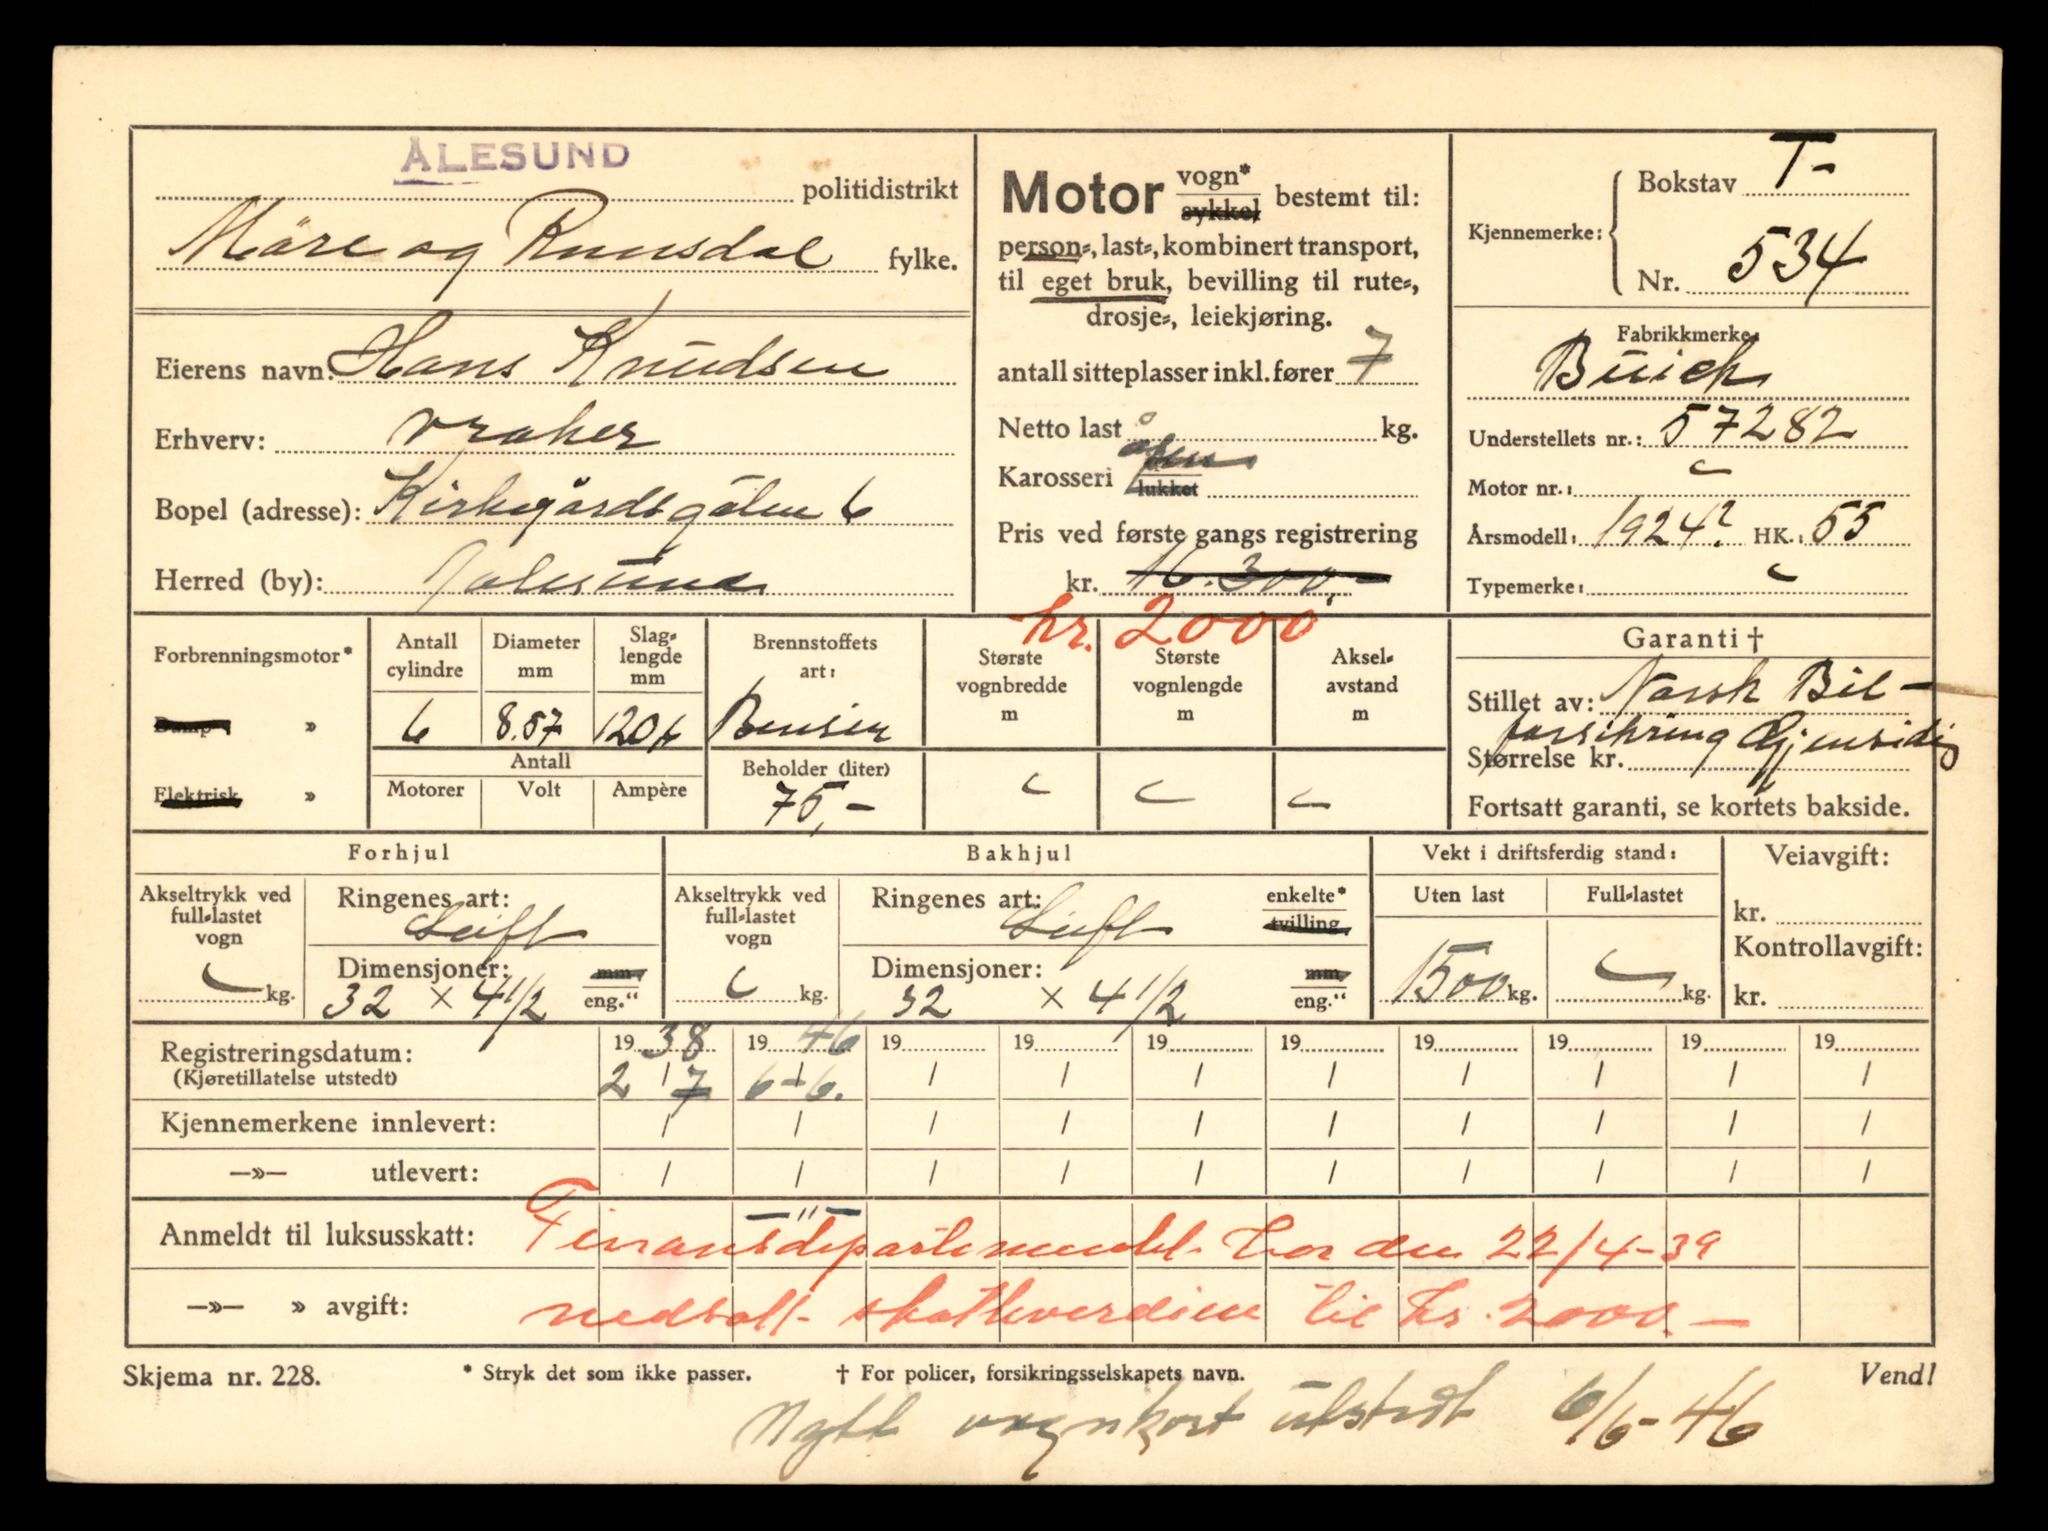 ÅLESUND
politidistrikt
Möre og Rumsdal fylke.
Eierens navn: Hans Knudsen
Erhverv: vraker
Bopel (adresse): Kirkegårdsgaten 6
Herred (by): Aalesund
Motor vogn* sykkel bestemt til:
person-, last-, kombinert transport,
til eget bruk, bevilling til rute-,
drosje-, leiekjøring.
antall sitteplasser inkl. fører 7
Netto last kg.
Karosseri åpen lukket
Pris ved første gangs registrering
kr. 16.300,-
kr. 2000
Kjennemerke: Bokstav T-
Nr. 534
Fabrikkmerke:
Buick
Understellets nr.: 57282
Motor nr.:
Årsmodell: 1924? HK.: 55
Typemerke:
Forbrenningsmotor*
Damp »
Elektrisk »
Antall cylindre
6
Diameter mm
8.57
Slag-lengde mm
120
Antall
Motorer Volt Ampère
Brennstoffets art:
Bensin
Beholder (liter)
75,-
Største vognbredde m
Største vognlengde m
Aksel-avstand m
Garanti †
Stillet av: Norsk Bil-
forsikring Gjensidig
Størrelse kr.
Fortsatt garanti, se kortets bakside.
Forhjul
Akseltrykk ved full-lastet vogn
kg.
Ringenes art:
Luft
Dimensjoner: mm
32 × 4 1/2 eng."
Bakhjul
Akseltrykk ved full-lastet vogn
kg.
Ringenes art: enkelte*
Luft tvilling
Dimensjoner: mm
32 × 4 1/2 eng."
Vekt i driftsferdig stand:
Uten last Full-lastet
1500 kg. kg.
Veiavgift:
kr.
Kontrollavgift:
kr.
Registreringsdatum: 1938 1946 19 19 19 19 19 19 19 19
(Kjøretillatelse utstedt) 2 / 7 6-6. / / / / / / / /
Kjennemerkene innlevert: / / / / / / / / / /
—»— utlevert: / / / / / / / / / /
— " —
Anmeldt til luksusskatt: Finansdepartementet har den 22/4-39
—»— » avgift: nedsatt skatteverdien til kr. 2000.—
Skjema nr. 228. * Stryk det som ikke passer. † For policer, forsikringsselskapets navn. Vend!
Nytt vognkort utstedt 6/6-46